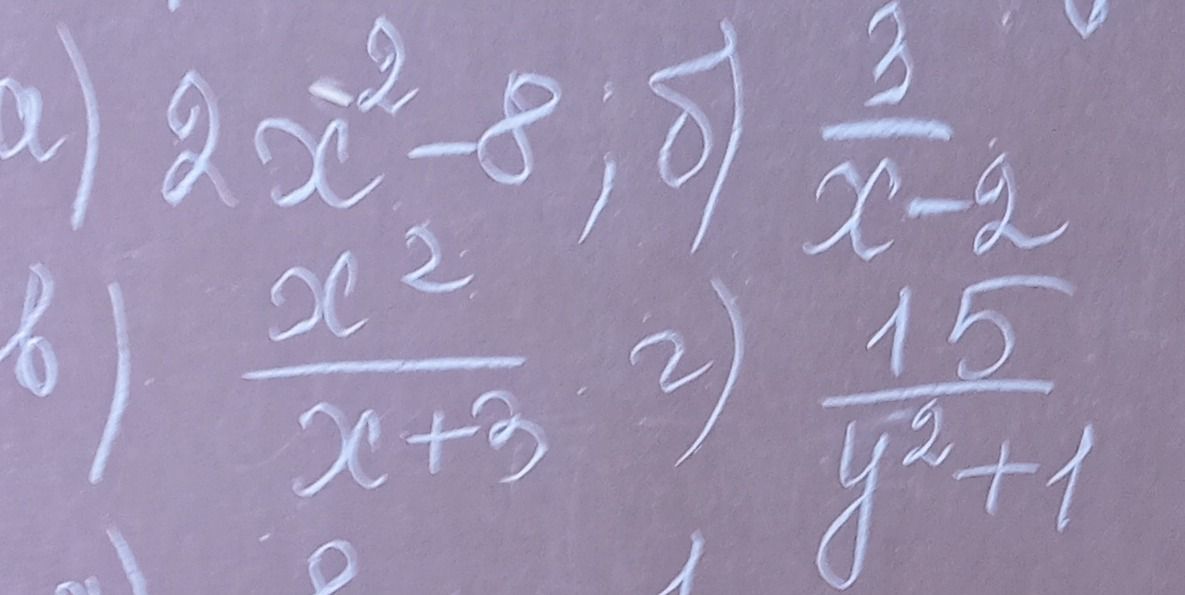 а) 2x² - 8; б) 3/(x - 2)
в) x²/(x + 3) г) 15/(y² + 1)